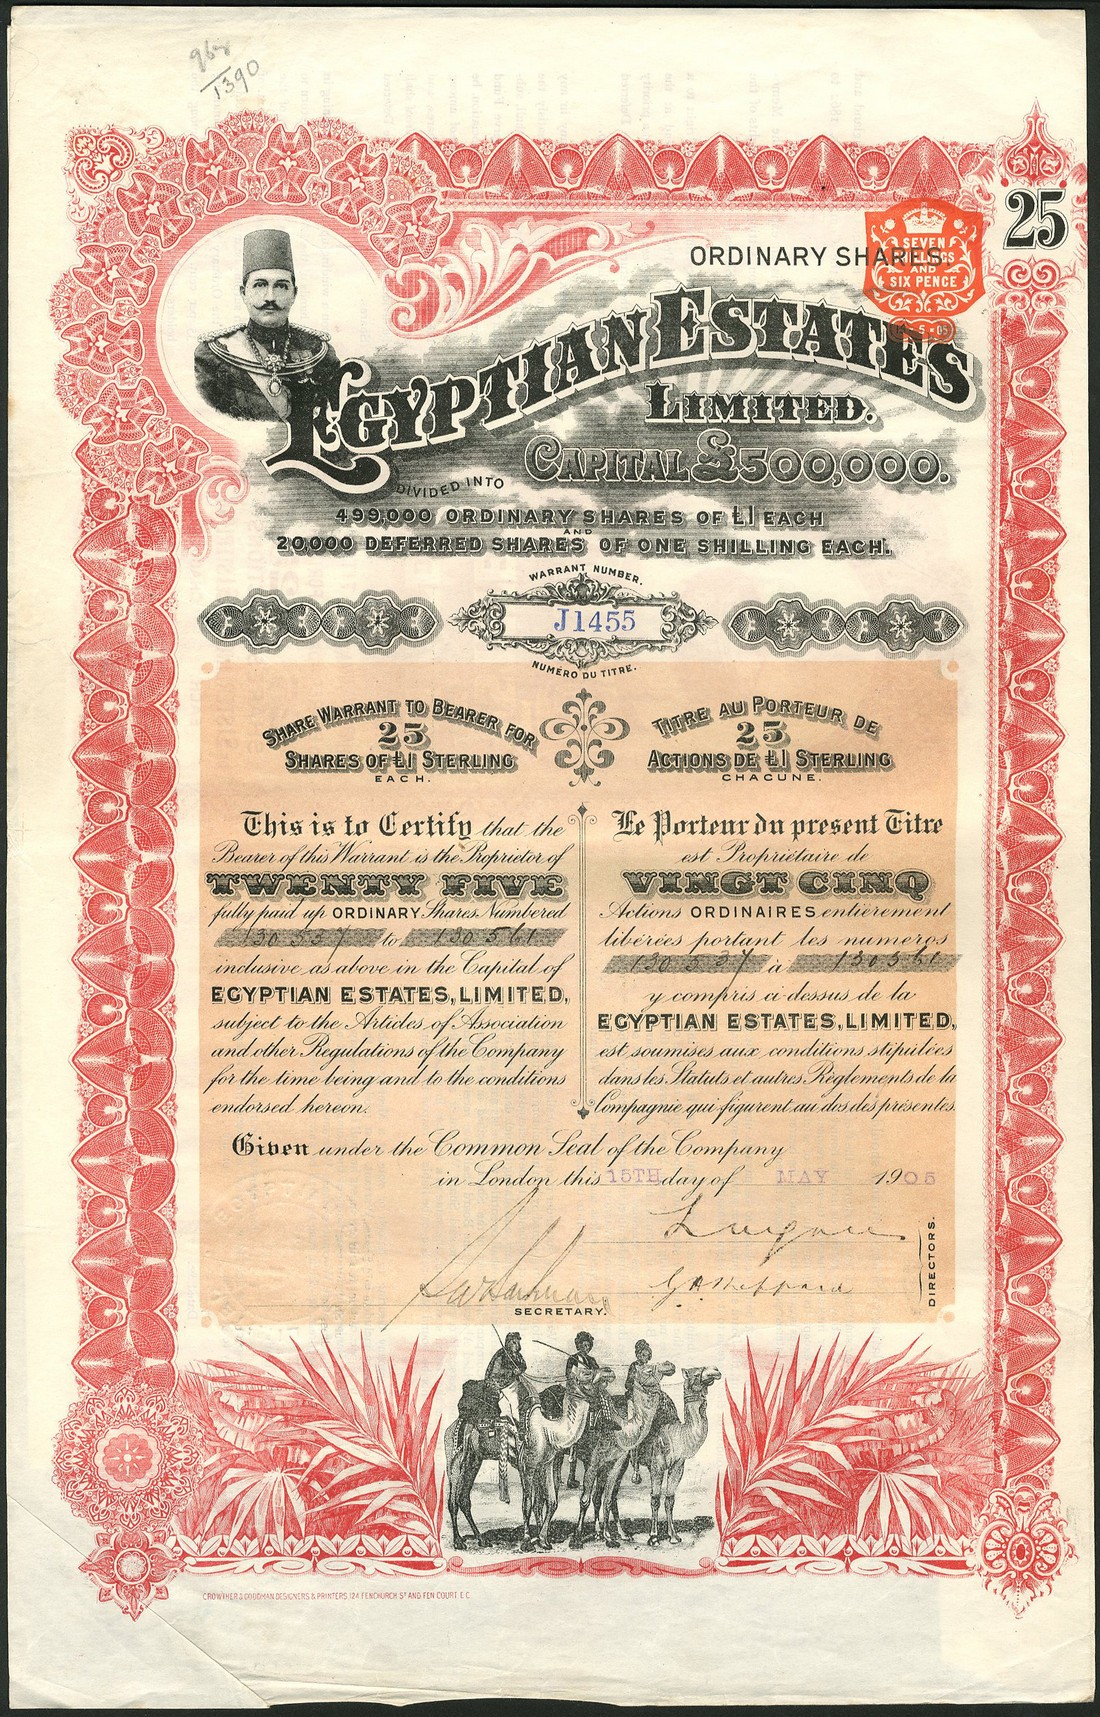 968
1390
25
ORDINARY SHARES.
SEVEN
SHILLINGS
AND
SIX PENCE
EGYPTIAN ESTATES
LIMITED.
CAPITAL £500,000.
DIVIDED INTO
499,000 ORDINARY SHARES OF £1 EACH
AND
20,000 DEFERRED SHARES OF ONE SHILLING EACH.
WARRANT NUMBER.
J1455
NUMÉRO DU TITRE.
SHARE WARRANT TO BEARER FOR
25
SHARES OF £1 STERLING
EACH.
This is to Certify that the
Bearer of this Warrant is the Proprietor of
TWENTY FIVE
fully paid up ORDINARY Shares Numbered
130537 to 130561
inclusive as above in the Capital of
EGYPTIAN ESTATES, LIMITED,
subject to the Articles of Association
and other Regulations of the Company
for the time being and to the conditions
endorsed hereon.
TITRE AU PORTEUR DE
25
ACTIONS DE £1 STERLING
CHACUNE.
Le Porteur du present Titre
est Propriétaire de
VINGT CINQ
Actions ORDINAIRES entièrement
libérées portant les numeros
130537 à 130561
y compris ci dessus de la
EGYPTIAN ESTATES, LIMITED,
est soumises aux conditions stipulées
dans les Statuts et autres Règlements de la
Compagnie qui figurent au dos des présentes.
Given under the Common Seal of the Company
in London this 15TH day of MAY 1905
G A Sheppard
DIRECTORS.
SECRETARY.
CROWTHER & GOODMAN DESIGNERS & PRINTERS, 124 FENCHURCH ST AND FEN COURT E.C.
25